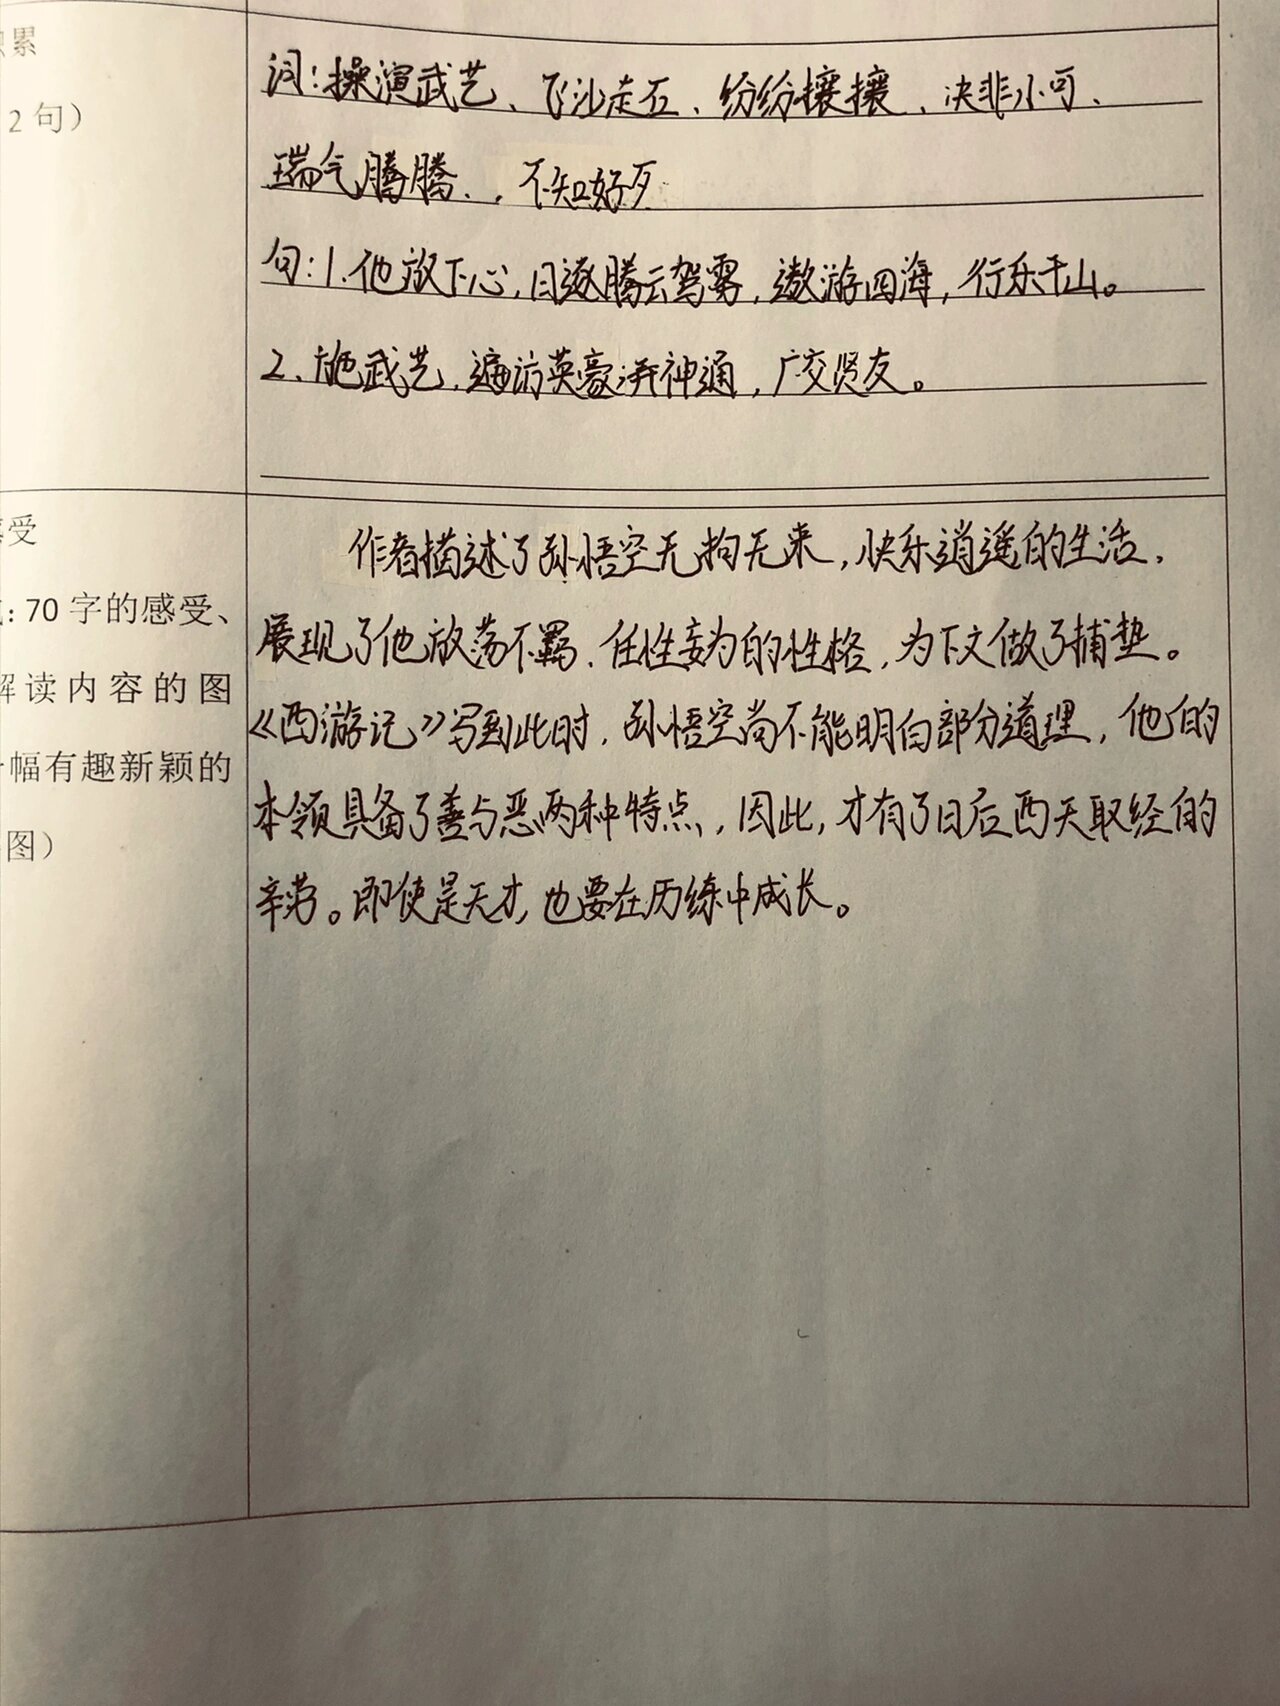 累
2句）
词：操演武艺、飞沙走石、纷纷攘攘、决非小可、
瑞气腾腾、，不知好歹
句：1.他放下心，日逐腾云驾雾，遨游四海，行乐千山。
2、施武艺，遍访英豪；弄神通，广交贤友。
受
：70字的感受、
解读内容的图
幅有趣新颖的
图）
作者描述了孙悟空无拘无束，快乐逍遥的生活，
展现了他放荡不羁、任性妄为的性格，为下文做了捕垫。
《西游记》写到此时，孙悟空尚不能明白部分道理，他的
本领具备了善与恶两种特点，因此，才有了日后西天取经的
辛劳。即使是天才，也要在历练中成长。